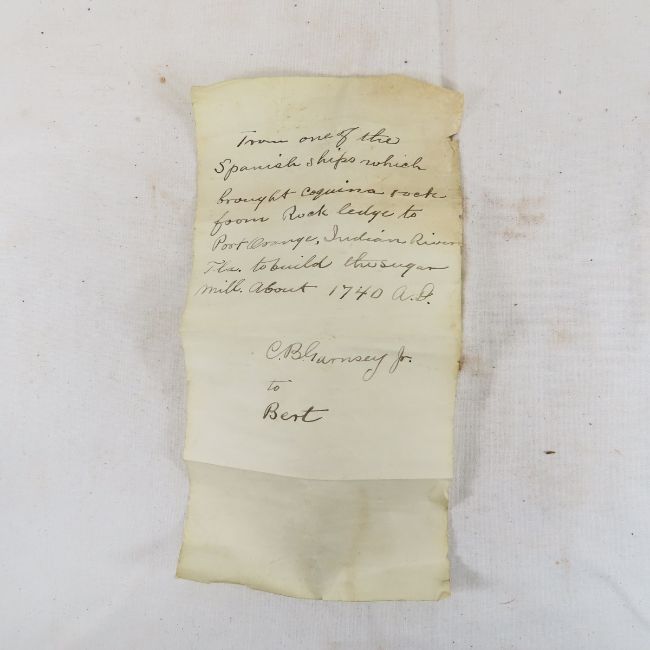 From one of the
Spanish ships which
brought coquina rock
from Rock ledge to
Port Orange, Indian River
Fla. to build the sugar
mill. About 1740 A.D.
C.B. Garnsey Jr.
to
Bert